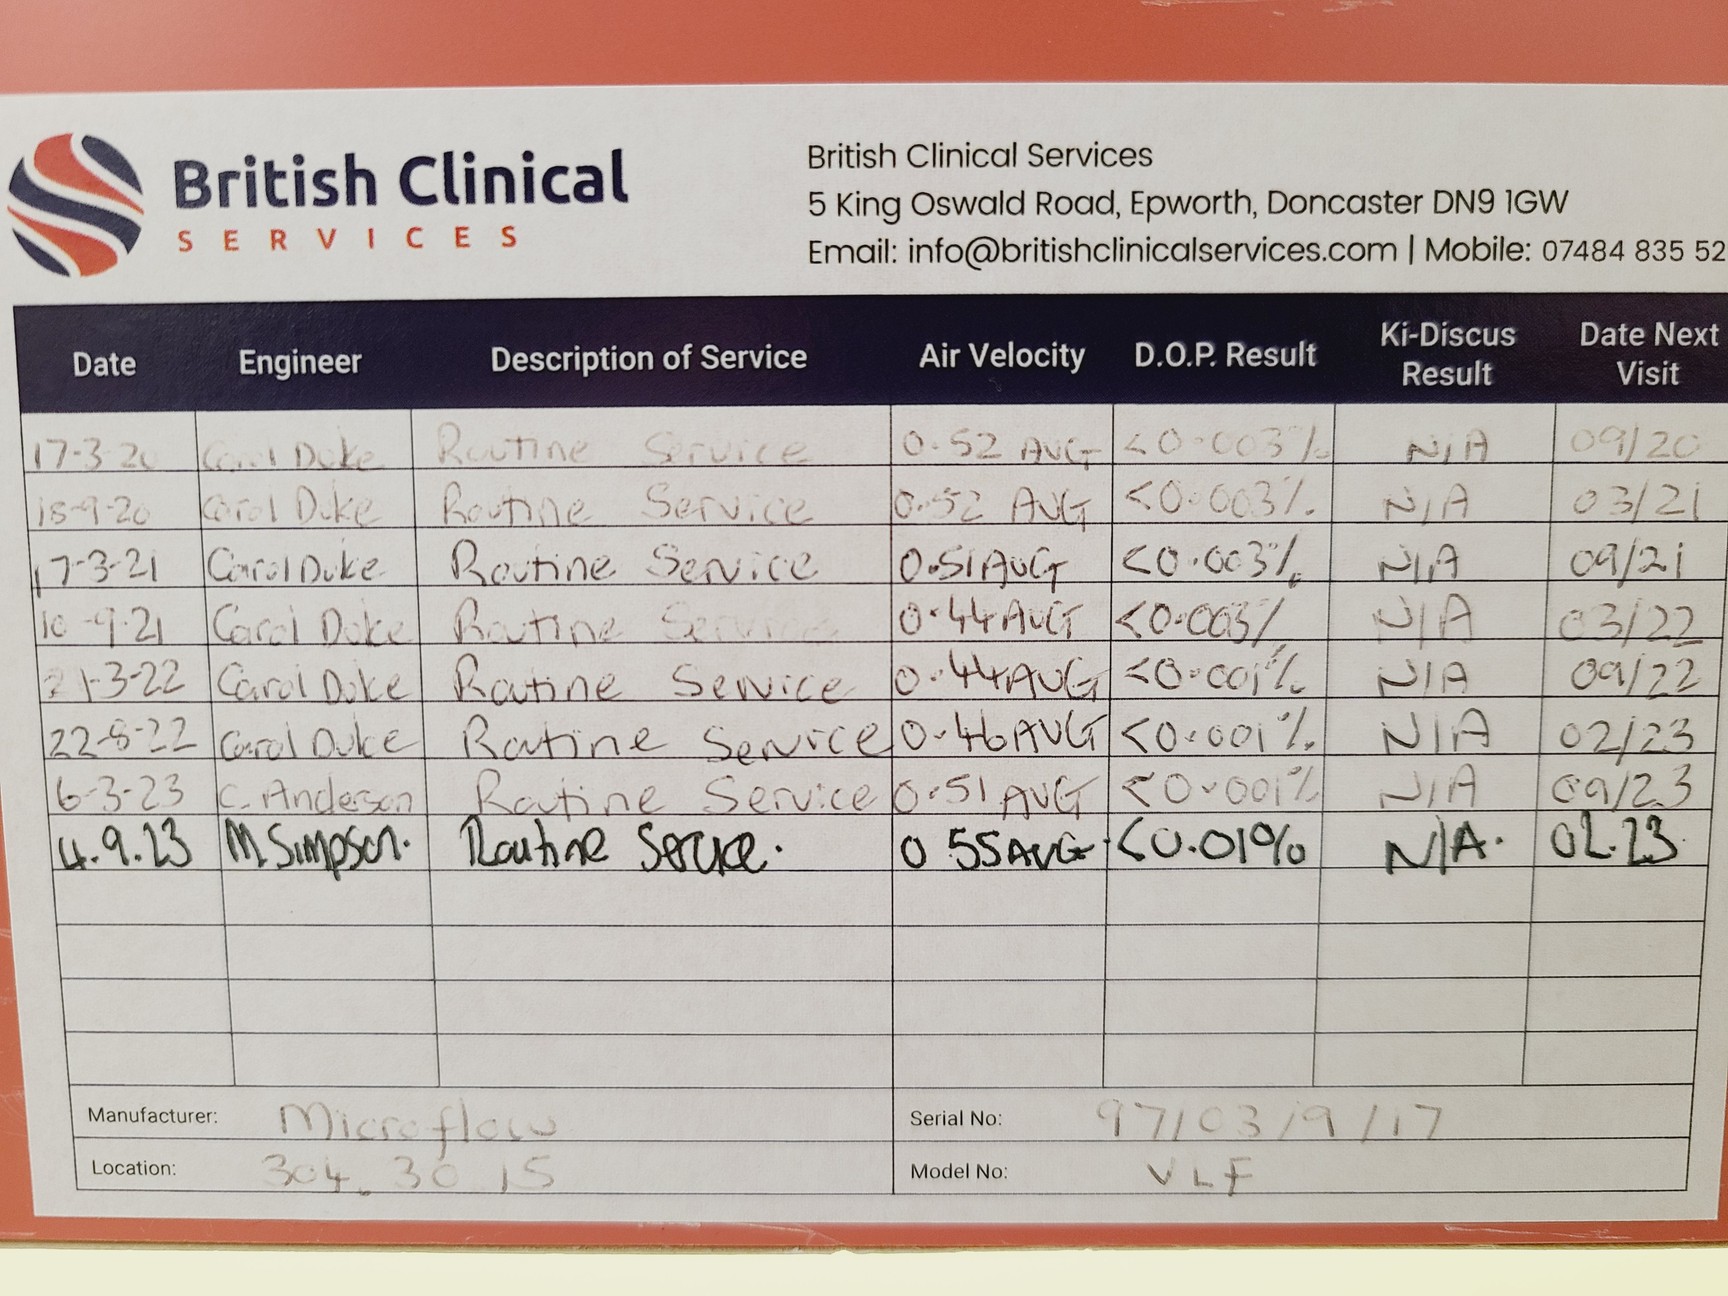 British Clinical
SERVICES
British Clinical Services
5 King Oswald Road, Epworth, Doncaster DN9 1GW
Email: info@britishclinicalservices.com | Mobile: 07484 835 52
Date Engineer Description of Service Air Velocity D.O.P. Result Ki-Discus Result Date Next Visit
17-3-20 Carol Duke Routine Service 0.52 AVG <0.003% N/A 09/20
18-9-20 Carol Duke Routine Service 0.52 AVG <0.003% N/A 03/21
17-3-21 Carol Duke Routine Service 0.51 AVG <0.003% N/A 09/21
10-9-21 Carol Duke Routine Service 0.44 AVG <0.003% N/A 03/22
21-3-22 Carol Duke Routine Service 0.44 AVG <0.001% N/A 09/22
22-8-22 Carol Duke Routine Service 0.46 AVG <0.001% N/A 02/23
6-3-23 C. Anderson Routine Service 0.51 AVG <0.001% N/A 09/23
4.9.23 M Simpson. Routine Service. 0.55 AVG <0.01% N/A. 02.23
Manufacturer: Microflow Serial No: 97/03/9/17
Location: 304.30 15 Model No: VLF